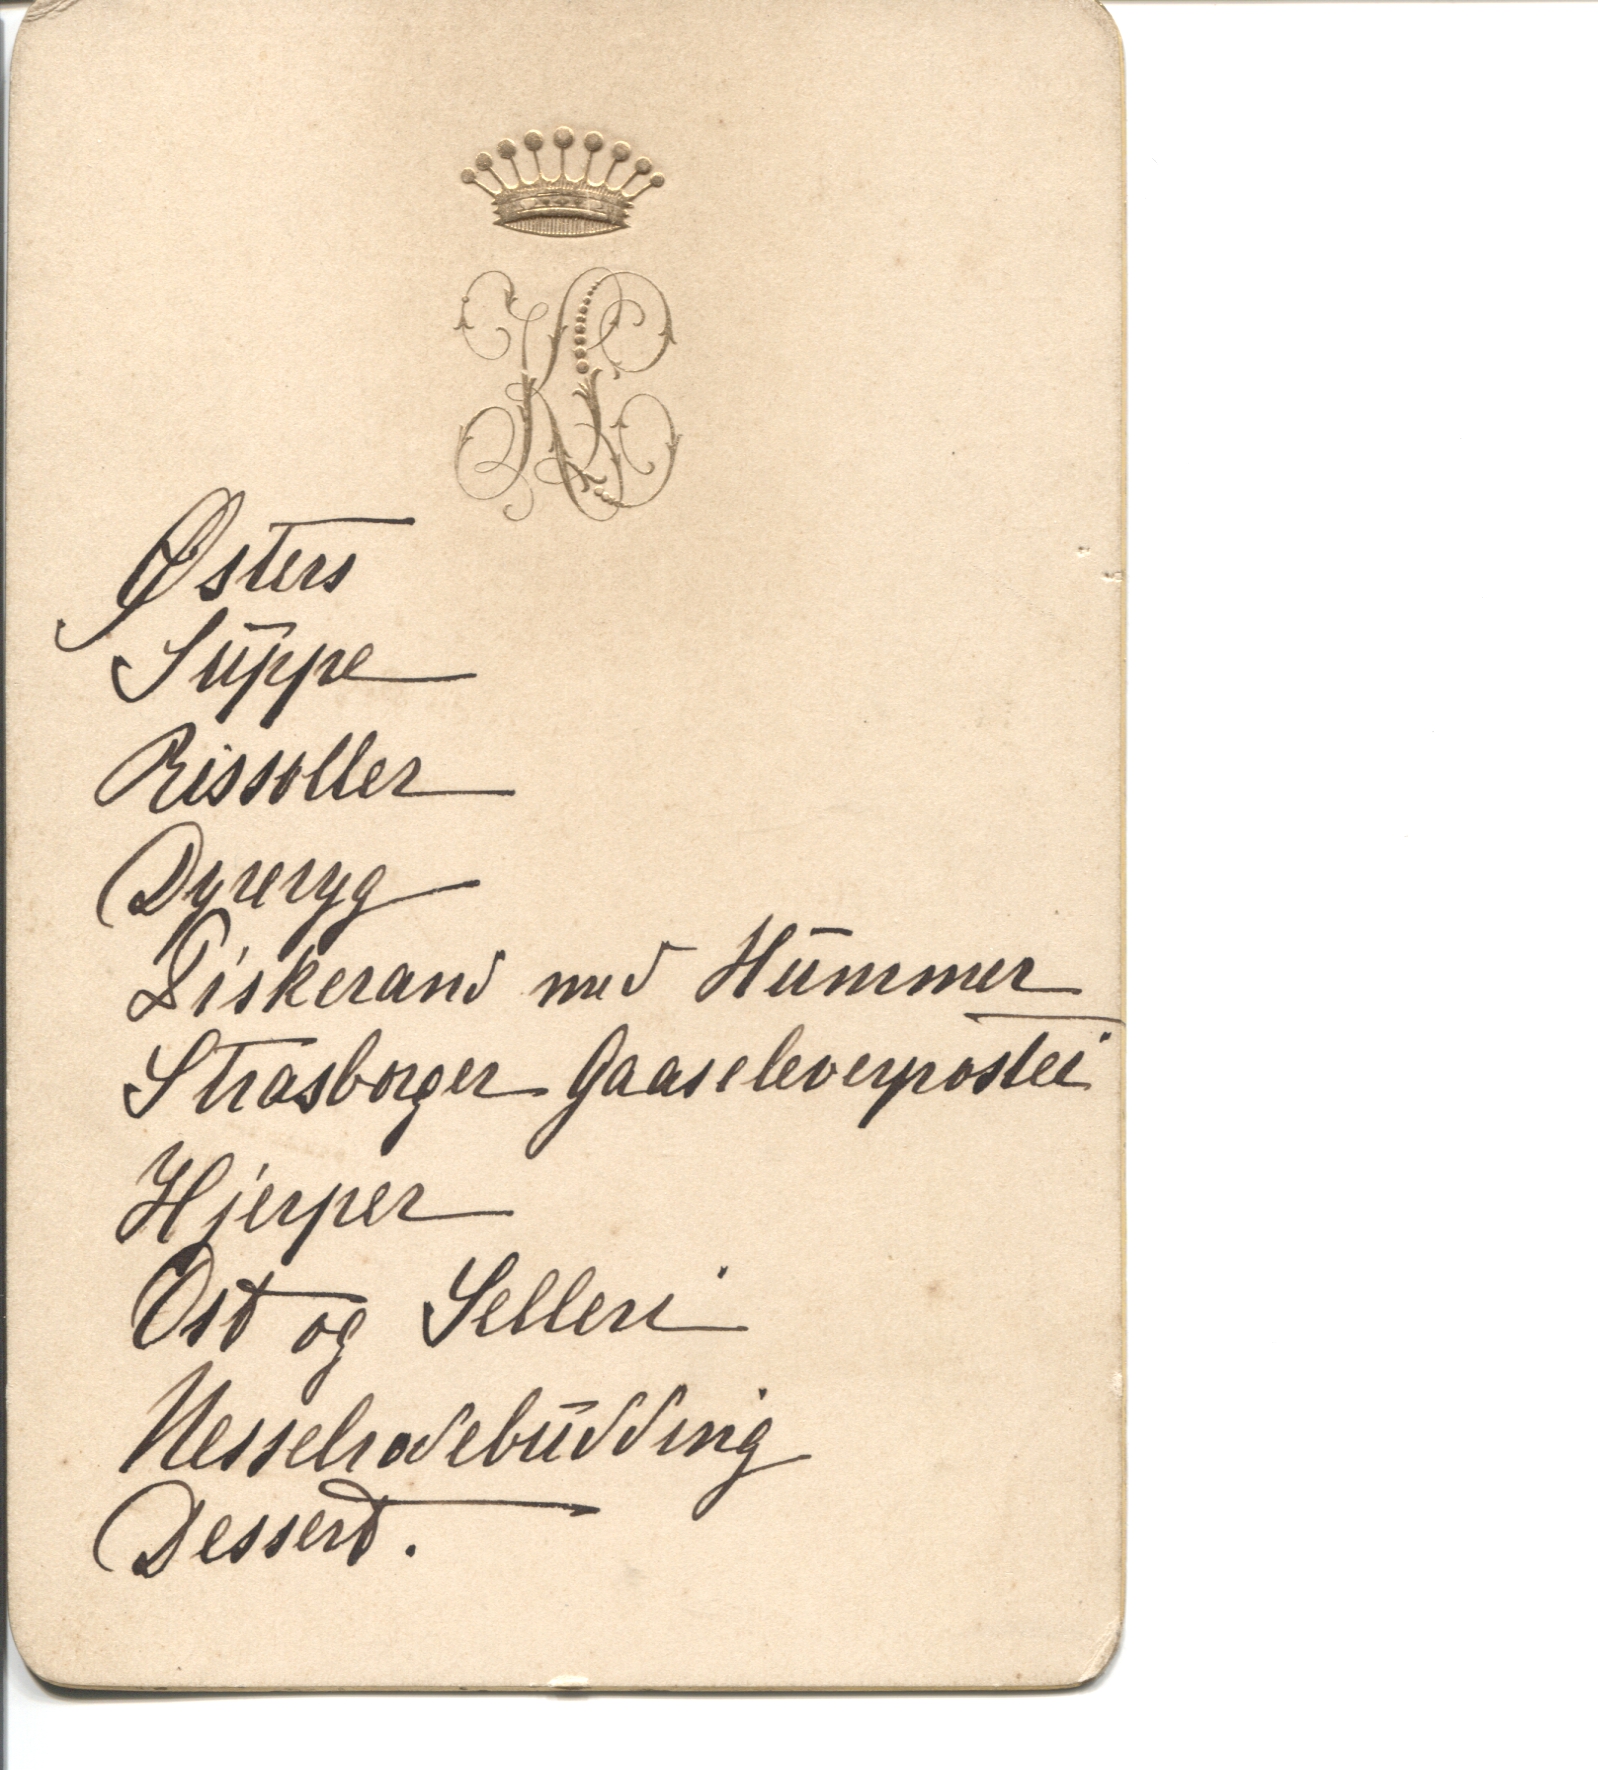 Østers
Suppe
Rissoller
Dyreryg
Fiskerand med Hummer
Strasborger Gaaseleverpostei
Hjerper
Ost og Selleri
Nesselrodebudding
Dessert.